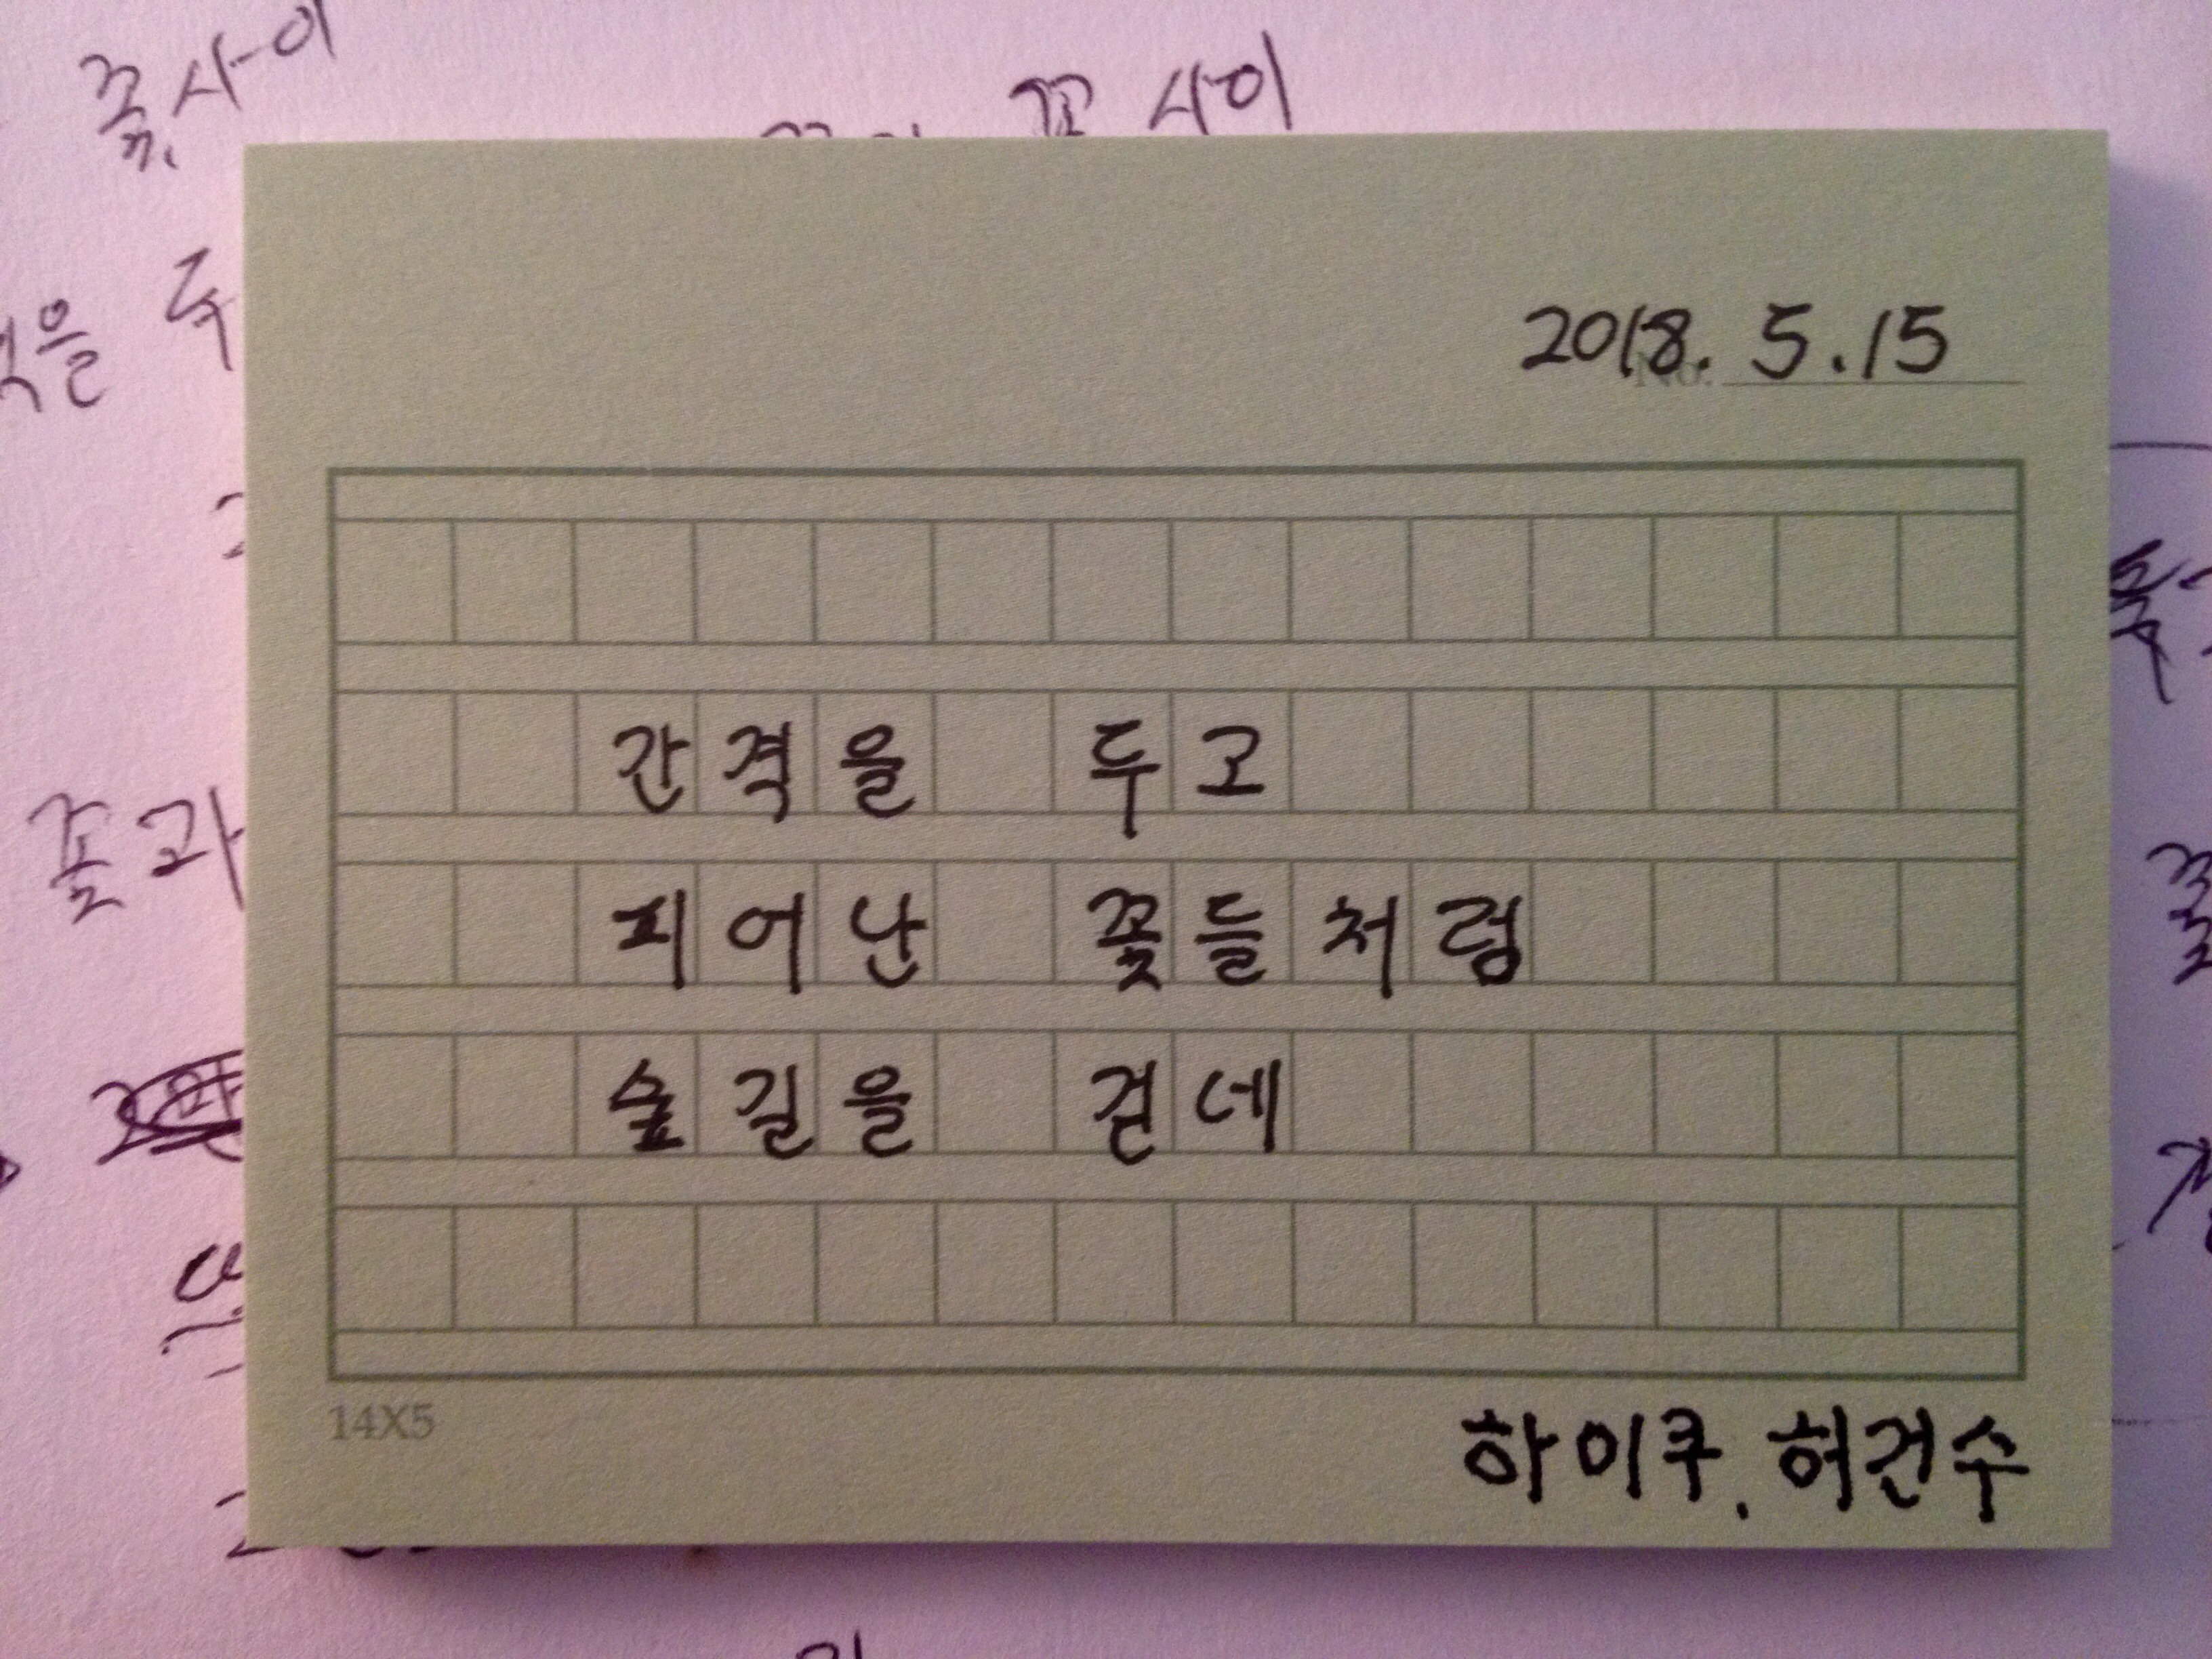 꽃 사이
꽃 사이
2018. 5. 15
No.
간격을 두고
피어난 꽃들처럼
숲길을 걷네
꽃과
14X5
하이쿠. 허건수